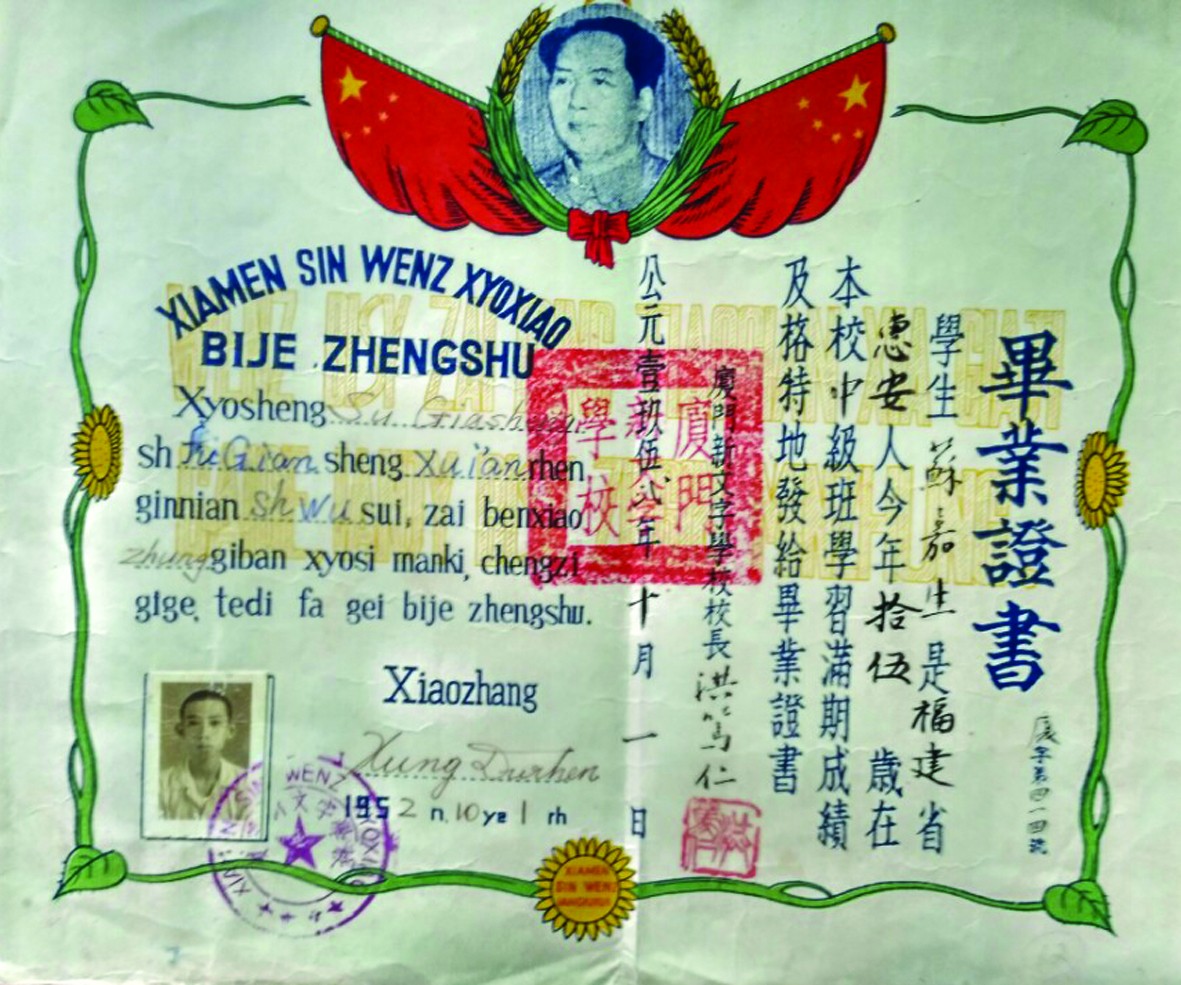 XIAMEN SIN WENZ XYOXIAO
BIJE ZHENGSHU
Xyosheng Su Giasheng
sh FuGian sheng Xui'an rhen
ginnian shwu sui, zai benxiao
zhunggiban xyosi manki, chengzi
gige, tedi fa gei bije zhengshu.
Xiaozhang
Xung Durhen
1952 n. 10 ye 1 rh
畢業證書
廈字第四一四號
學生蘇嘉生是福建省
惠安人今年拾伍歲在
本校中級班學習滿期成績
及格特地發給畢業證書
廈門新文字學校校長洪篤仁
公元壹玖伍年十月一日
廈門
新文字
學校
XIAMEN
SIN WENZ